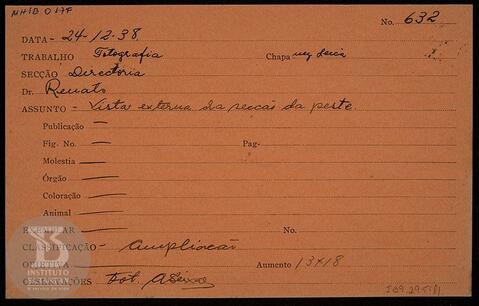 No. 632
DATA - 24-12-38
TRABALHO Fotografia Chapa
SECÇÃO Directoria
Dr. Renato
ASSUNTO - Vista externa da seccão da peste.
Publicação —
Fig. No. — Pag-
Molestia —
Órgão —
Coloração —
Animal —
EXEMPLAR — No.
CLASSIFICAÇÃO - Ampliacão
OBJETIVA — Aumento 13X18
OBSERVAÇÕES Fot.
INSTITUTO